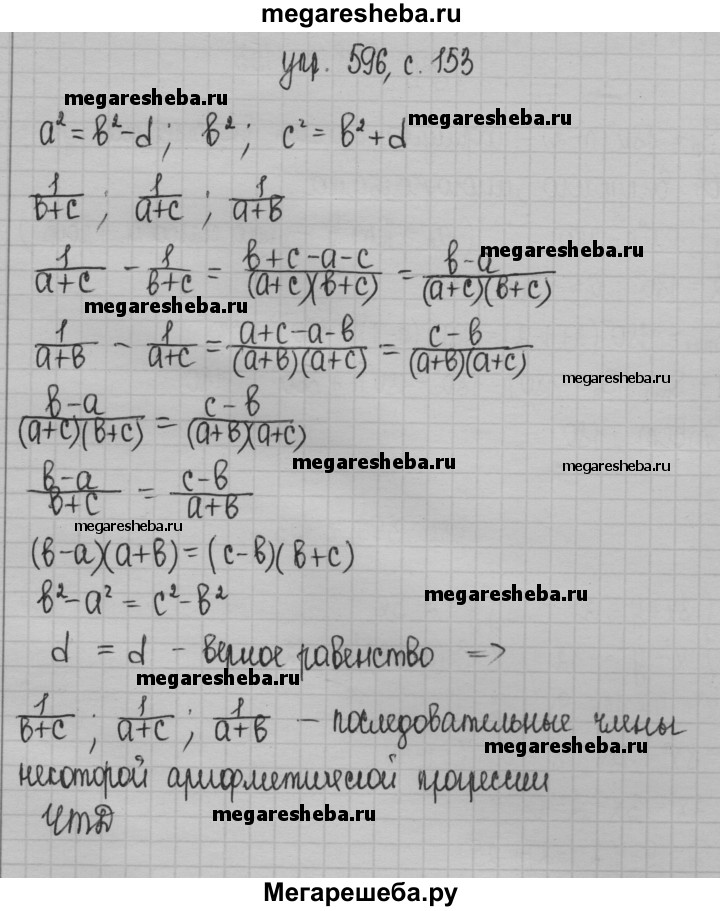 megaresheba.ru
упр. 596, с. 153
megaresheba.ru
a² = в² - d ; в² ; c² = в² + d
megaresheba.ru
1/(в+c) ; 1/(a+c) ; 1/(a+в)
1/(a+c) - 1/(в+c) = (в+c-a-c)/((a+c)(в+c)) = (в-a)/((a+c)(в+c))
megaresheba.ru
megaresheba.ru
1/(a+в) - 1/(a+c) = (a+c-a-в)/((a+в)(a+c)) = (c-в)/((a+в)(a+c))
megaresheba.ru
(в-a)/((a+c)(в+c)) = (c-в)/((a+в)(a+c))
megaresheba.ru
megaresheba.ru
(в-a)/(в+c) = (c-в)/(a+в)
megaresheba.ru
(в-a)(a+в) = (c-в)(в+c)
в² - a² = c² - в²
megaresheba.ru
d = d - верное равенство =>
megaresheba.ru
1/(в+c) ; 1/(a+c) ; 1/(a+в) - последовательные члены
megaresheba.ru
некоторой арифметической прогрессии
ЧТД
megaresheba.ru
Мегарешеба.ру